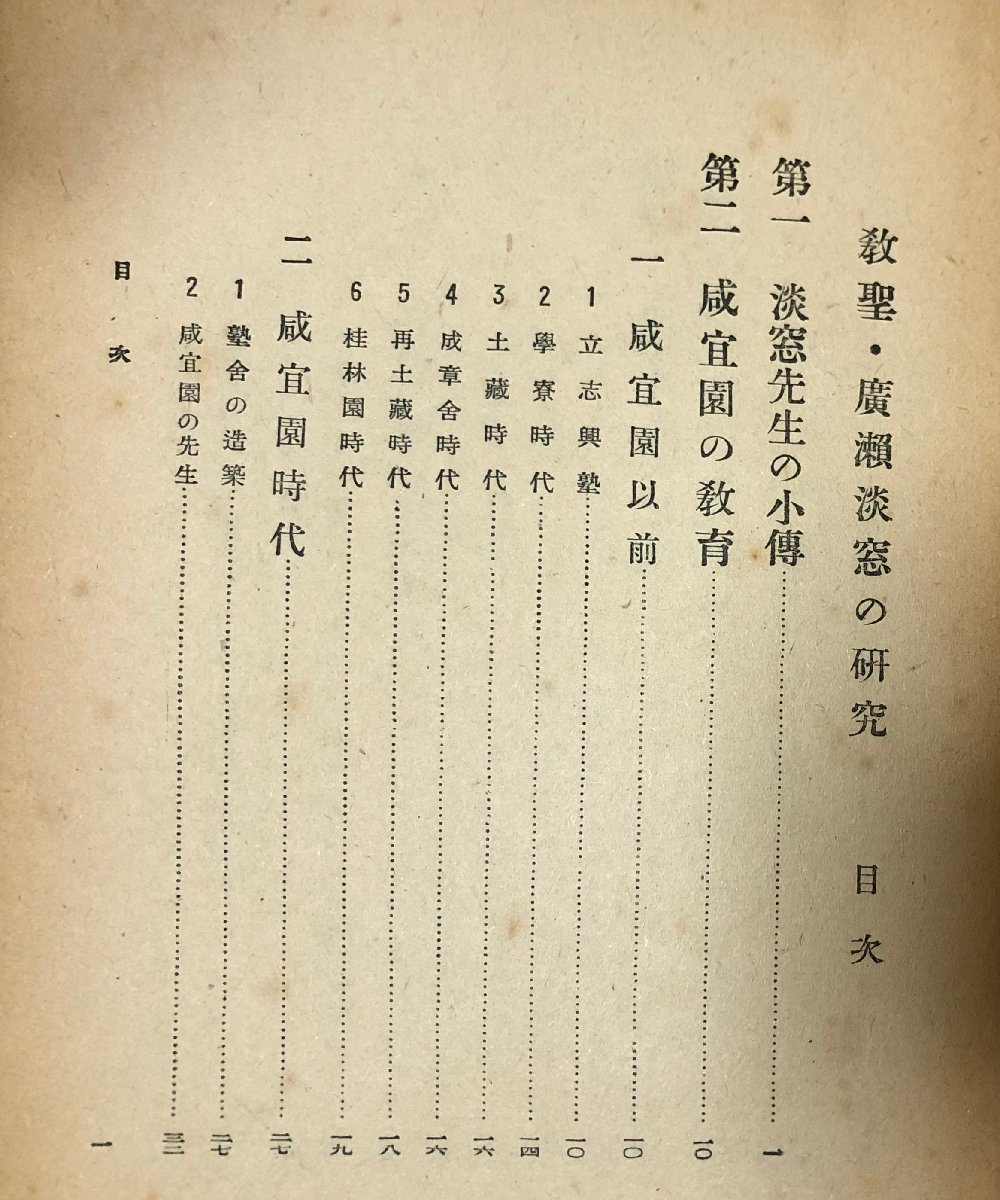 教聖・廣瀨淡窓の研究 目次
第一 淡窓先生の小傳……………一
第二 咸宜園の教育……………一〇
一 咸宜園以前……………一〇
1 立志興塾……………一〇
2 學寮時代……………一四
3 土藏時代……………一六
4 成章舍時代……………一六
5 再土藏時代……………一八
6 桂林園時代……………一九
二 咸宜園時代……………二七
1 塾舍の造築……………二七
2 咸宜園の先生……………三二
目次 一